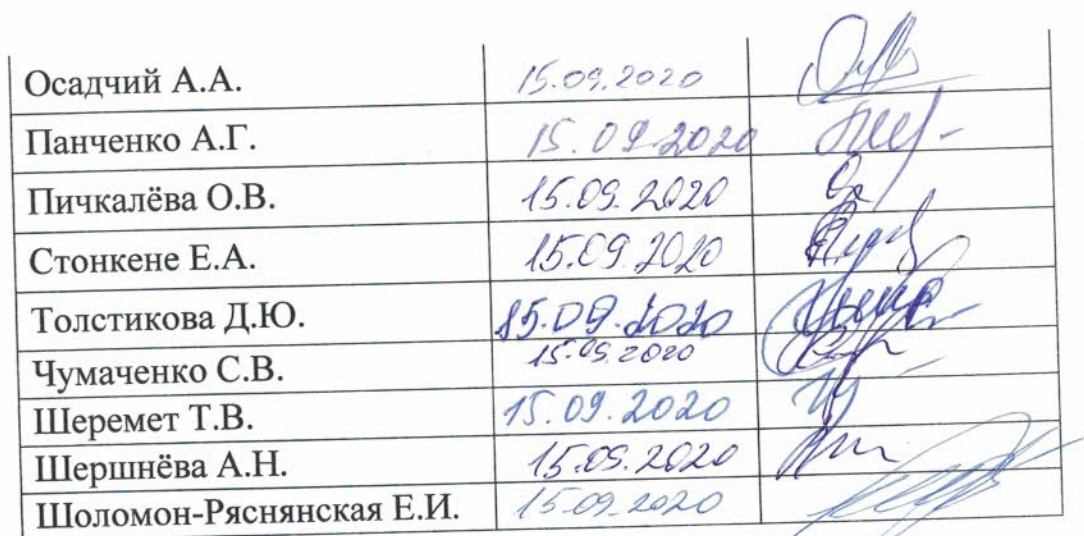 Осадчий А.А. 15.09.2020
Панченко А.Г. 15.09.2020
Пичкалёва О.В. 15.09.2020
Стонкене Е.А. 15.09.2020
Толстикова Д.Ю. 15.09.2020
Чумаченко С.В. 15.09.2020
Шеремет Т.В. 15.09.2020
Шершнёва А.Н. 15.09.2020
Шоломон-Ряснянская Е.И. 15.09.2020